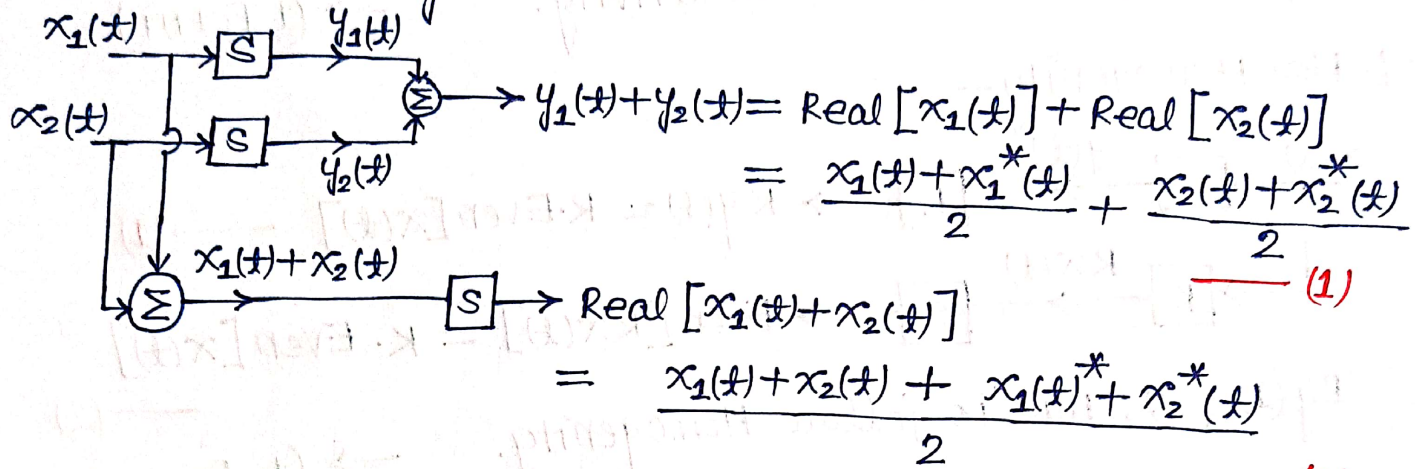 x₁(t) y₁(t)
S
x₂(t) Σ y₁(t)+y₂(t)= Real [x₁(t)]+Real [x₂(t)]
S
y₂(t) = x₁(t)+x₁*(t) / 2 + x₂(t)+x₂*(t) / 2
(1)
x₁(t)+x₂(t)
Σ S Real [x₁(t)+x₂(t)]
= x₁(t)+x₂(t) + x₁(t)*+x₂*(t) / 2